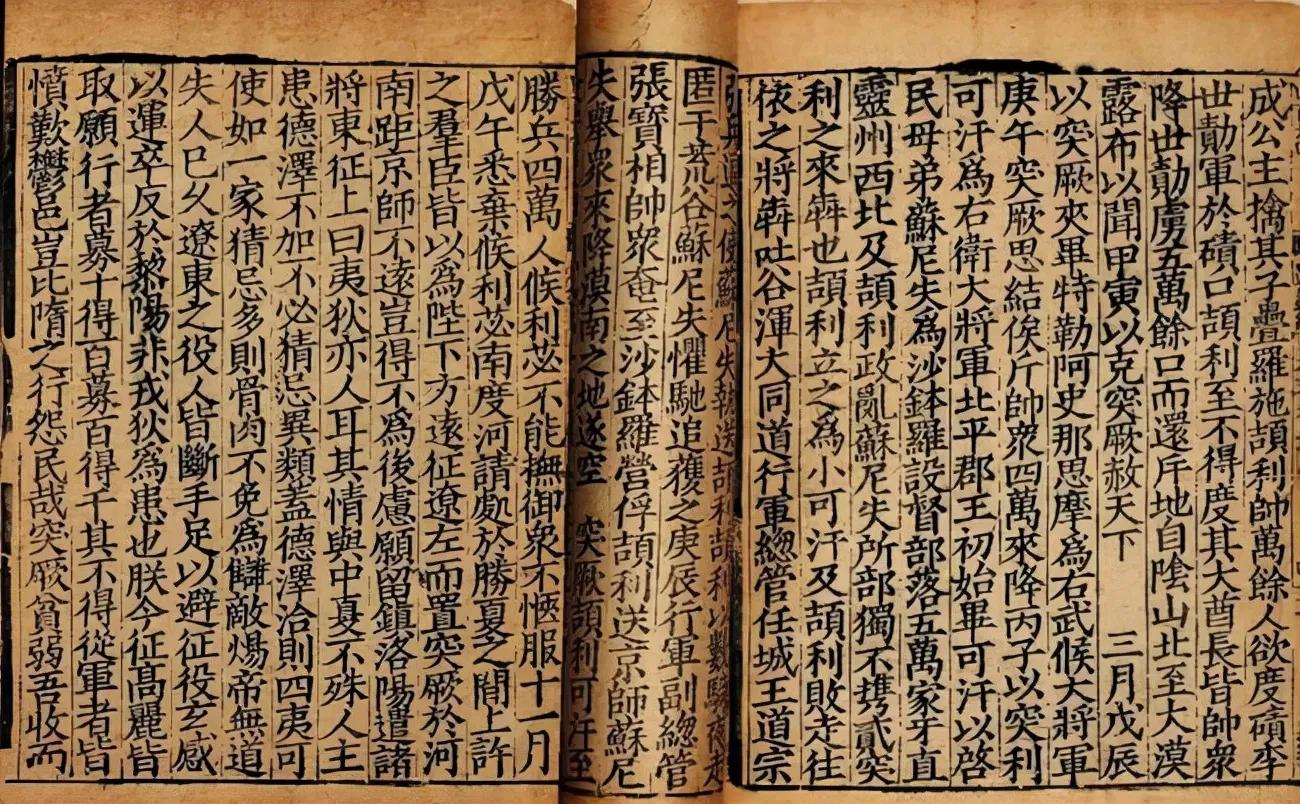 成公主擒其子疊羅施頡利帥萬餘人欲度磧李
世勣軍於磧口頡利至不得度其大酋長皆帥衆
降世勣虜五萬餘口而還斥地自隂山北至大漠
露布以聞甲寅以克突厥赦天下　三月戊辰
以突厥夾畢特勒阿史那思摩爲右武候大將軍
庚午突厥思結俟斤帥衆四萬來降丙子以突利
可汗爲右衛大將軍北平郡王初始畢可汗以啓
民母弟蘇尼失爲沙鉢羅設督部落五萬家牙直
靈州西北及頡利政亂蘇尼失所部獨不携貳突
利之來犇也頡利立之爲小可汗及頡利敗走往
依之將犇吐谷渾大同道行軍緫管任城王道宗
使蘇尼失執送頡利頡利以數騎夜走
匿于荒谷蘇尼失懼馳追獲之庚辰行軍副緫管
張寶相帥衆奄至沙鉢羅營俘頡利送京師蘇尼
失舉衆來降漠南之地遂空　突厥頡利可汗至
勝兵四萬人俟利苾不能撫御衆不愜服十一月
戊午悉棄俟利苾南度河請處於勝夏之間上許
之羣臣皆以爲陛下方遠征遼左而置突厥於河
南距京師不遠豈得不爲後慮願留鎮洛陽遣諸
將東征上曰夷狄亦人耳其情與中夏不殊人主
患德澤不加不必猜忌異類蓋德澤洽則四夷可
使如一家猜忌多則骨肉不免爲讎敵煬帝無道
失人巳乆遼東之役人皆斷手足以避征役玄感
以運卒反於黎陽非戎狄爲患也朕今征髙麗皆
取願行者募十得百募百得千其不得從軍者皆
憤歎鬱邑豈比隋之行怨民哉突厥貧弱吾收而